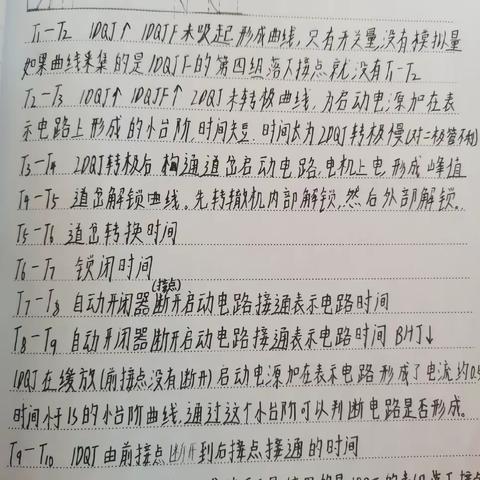 T₁-T₂ 1DQJ↑ 1DQJF未吸起形成曲线,只有开关量没有模拟量
如果曲线采集的是1DQJF的第四组落下接点就没有T₁-T₂
T₂-T₃ 1DQJ↑ 1DQJF↑ 2DQJ未转极曲线,为启动电源加在表
示电路上形成的小台阶,时间短,时间长为2DQJ转极慢(对二极管不利)
T₃-T₄ 2DQJ转极后 构通道岔启动电路,电机上电,形成峰值
T₄-T₅ 道岔解锁曲线。先转辙机内部解锁,然后外部解锁。
T₅-T₆ 道岔转换时间
T₆-T₇ 锁闭时间
(接点)
T₇-T₈ 自动开闭器断开启动电路接通表示电路时间
T₈-T₉ 自动开闭器断开启动电路接通表示电路时间 BHJ↓
1DQJ在缓放(前接点没有断开)启动电源加在表示电路形成了电流约0.5
时间小于1S的小台阶曲线,通过这个小台阶可以判断电路是否形成。
T₉-T₁₀ 1DQJ由前接点断开到后接点接通的时间